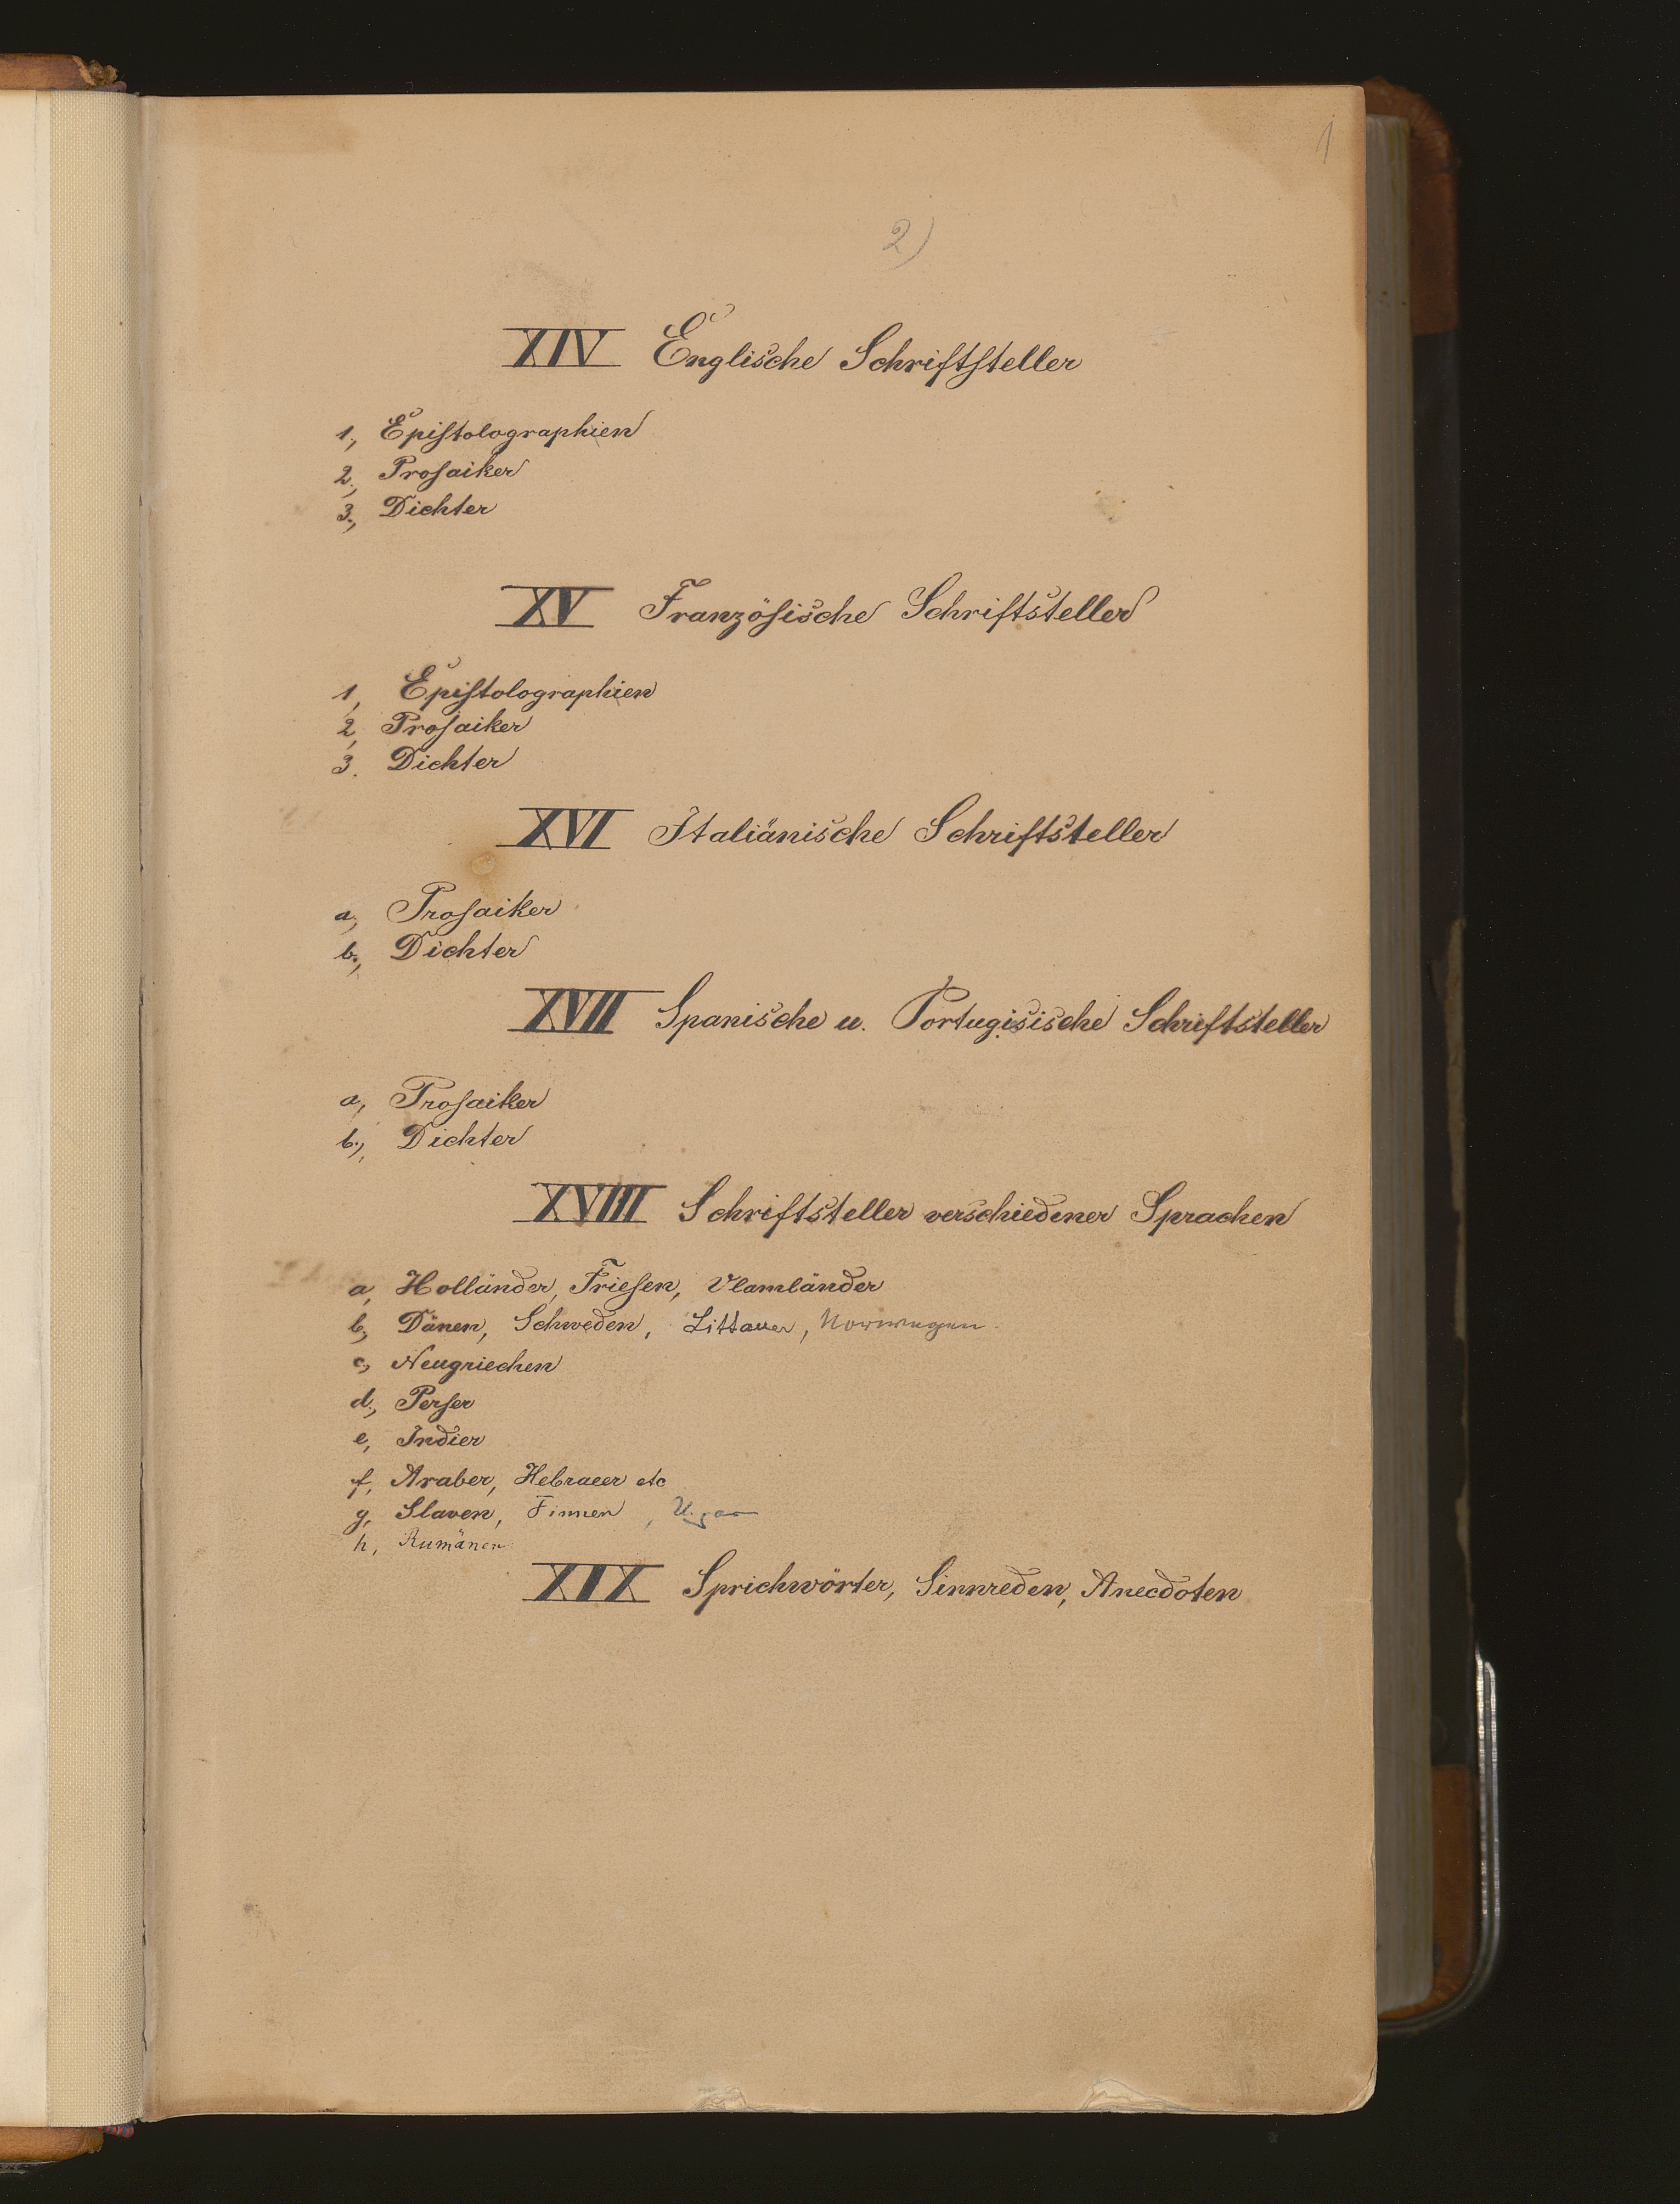 1
2)
XIV Englische Schriftsteller
1, Epistolographien
2, Prosaiker
3, Dichter
XV Französische Schriftsteller
1, Epistolographien
2, Prosaiker
3. Dichter
XVI Italiänische Schriftsteller
a, Prosaiker
b, Dichter
XVII Spanische u. Portugisische Schriftsteller
a, Prosaiker
b, Dichter
XVIII Schriftsteller verschiedener Sprachen
a, Holländer, Friesen, Vlamländer
b, Dänen, Schweden, Littauer, Norwegen
c, Neugriechen
d, Perser
e, Indier
f, Araber, Hebraeer etc
g, Slaven, Finnen,
h, Rumänen
XIX Sprichwörter, Sinnreden, Anecdoten